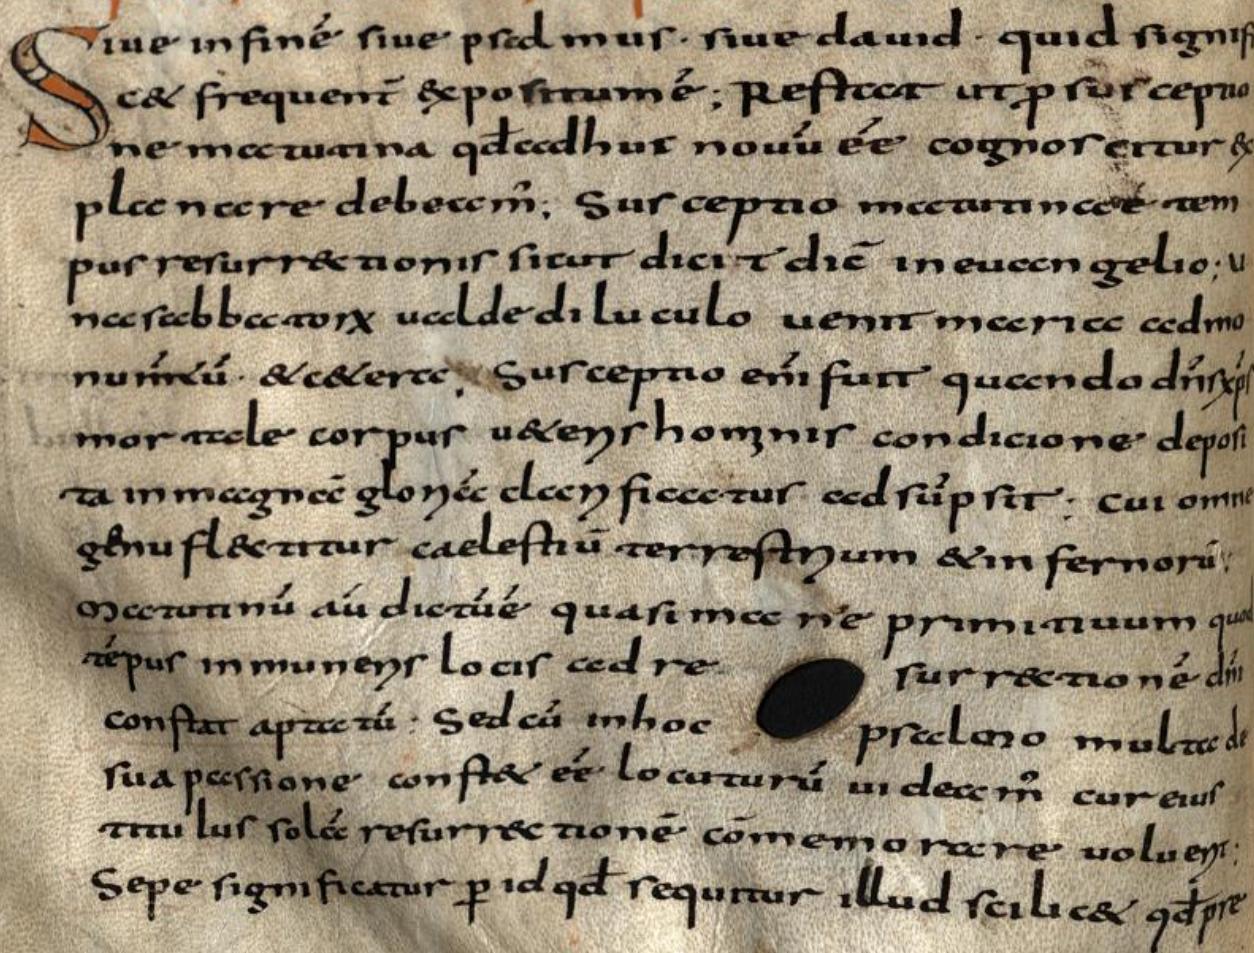 Siue infinē siue psalmus · siue dauid · quid signifi
cet frequent̄ expositum ē; Restat ut ꝑ susceptio
ne matutina qđ adhuc nouū ēē cognoscitur ex
planare debeam̄; Susceptio matutina ē tem
pus resurrectionis sicut dicit dic̄ in euangelio; u
na sabbatorꝝ ualde diluculo uenit maria ad mo
numtū · & cetera; Susceptio eni̅ fuit quando dn̄s xp̄s
mortale corpus ueteris hominis condicione deposi
ta in magnā gloriā clarificatus adsūpsit; cui omne
genu flectitur caelestiū terrestrium & infernorū;
Matutinū aū dictū ē quasi mane primitiuum quod
tēpus in muneris locis ad re surrectionē dn̄i
constat aptatū · Sed cū in hoc psalmo multa de
sua passione constet ēē locuturū uideam̄ cur eius
titulus solā resurrectionē cōmemorare uoluerit;
Sepe significatur ꝑ id qđ sequitur illud scilicet qđ pre